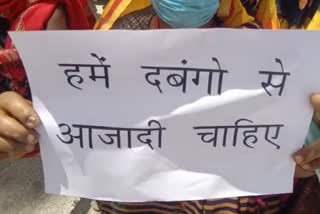 हमें दबंगो से
आजादी चाहिए